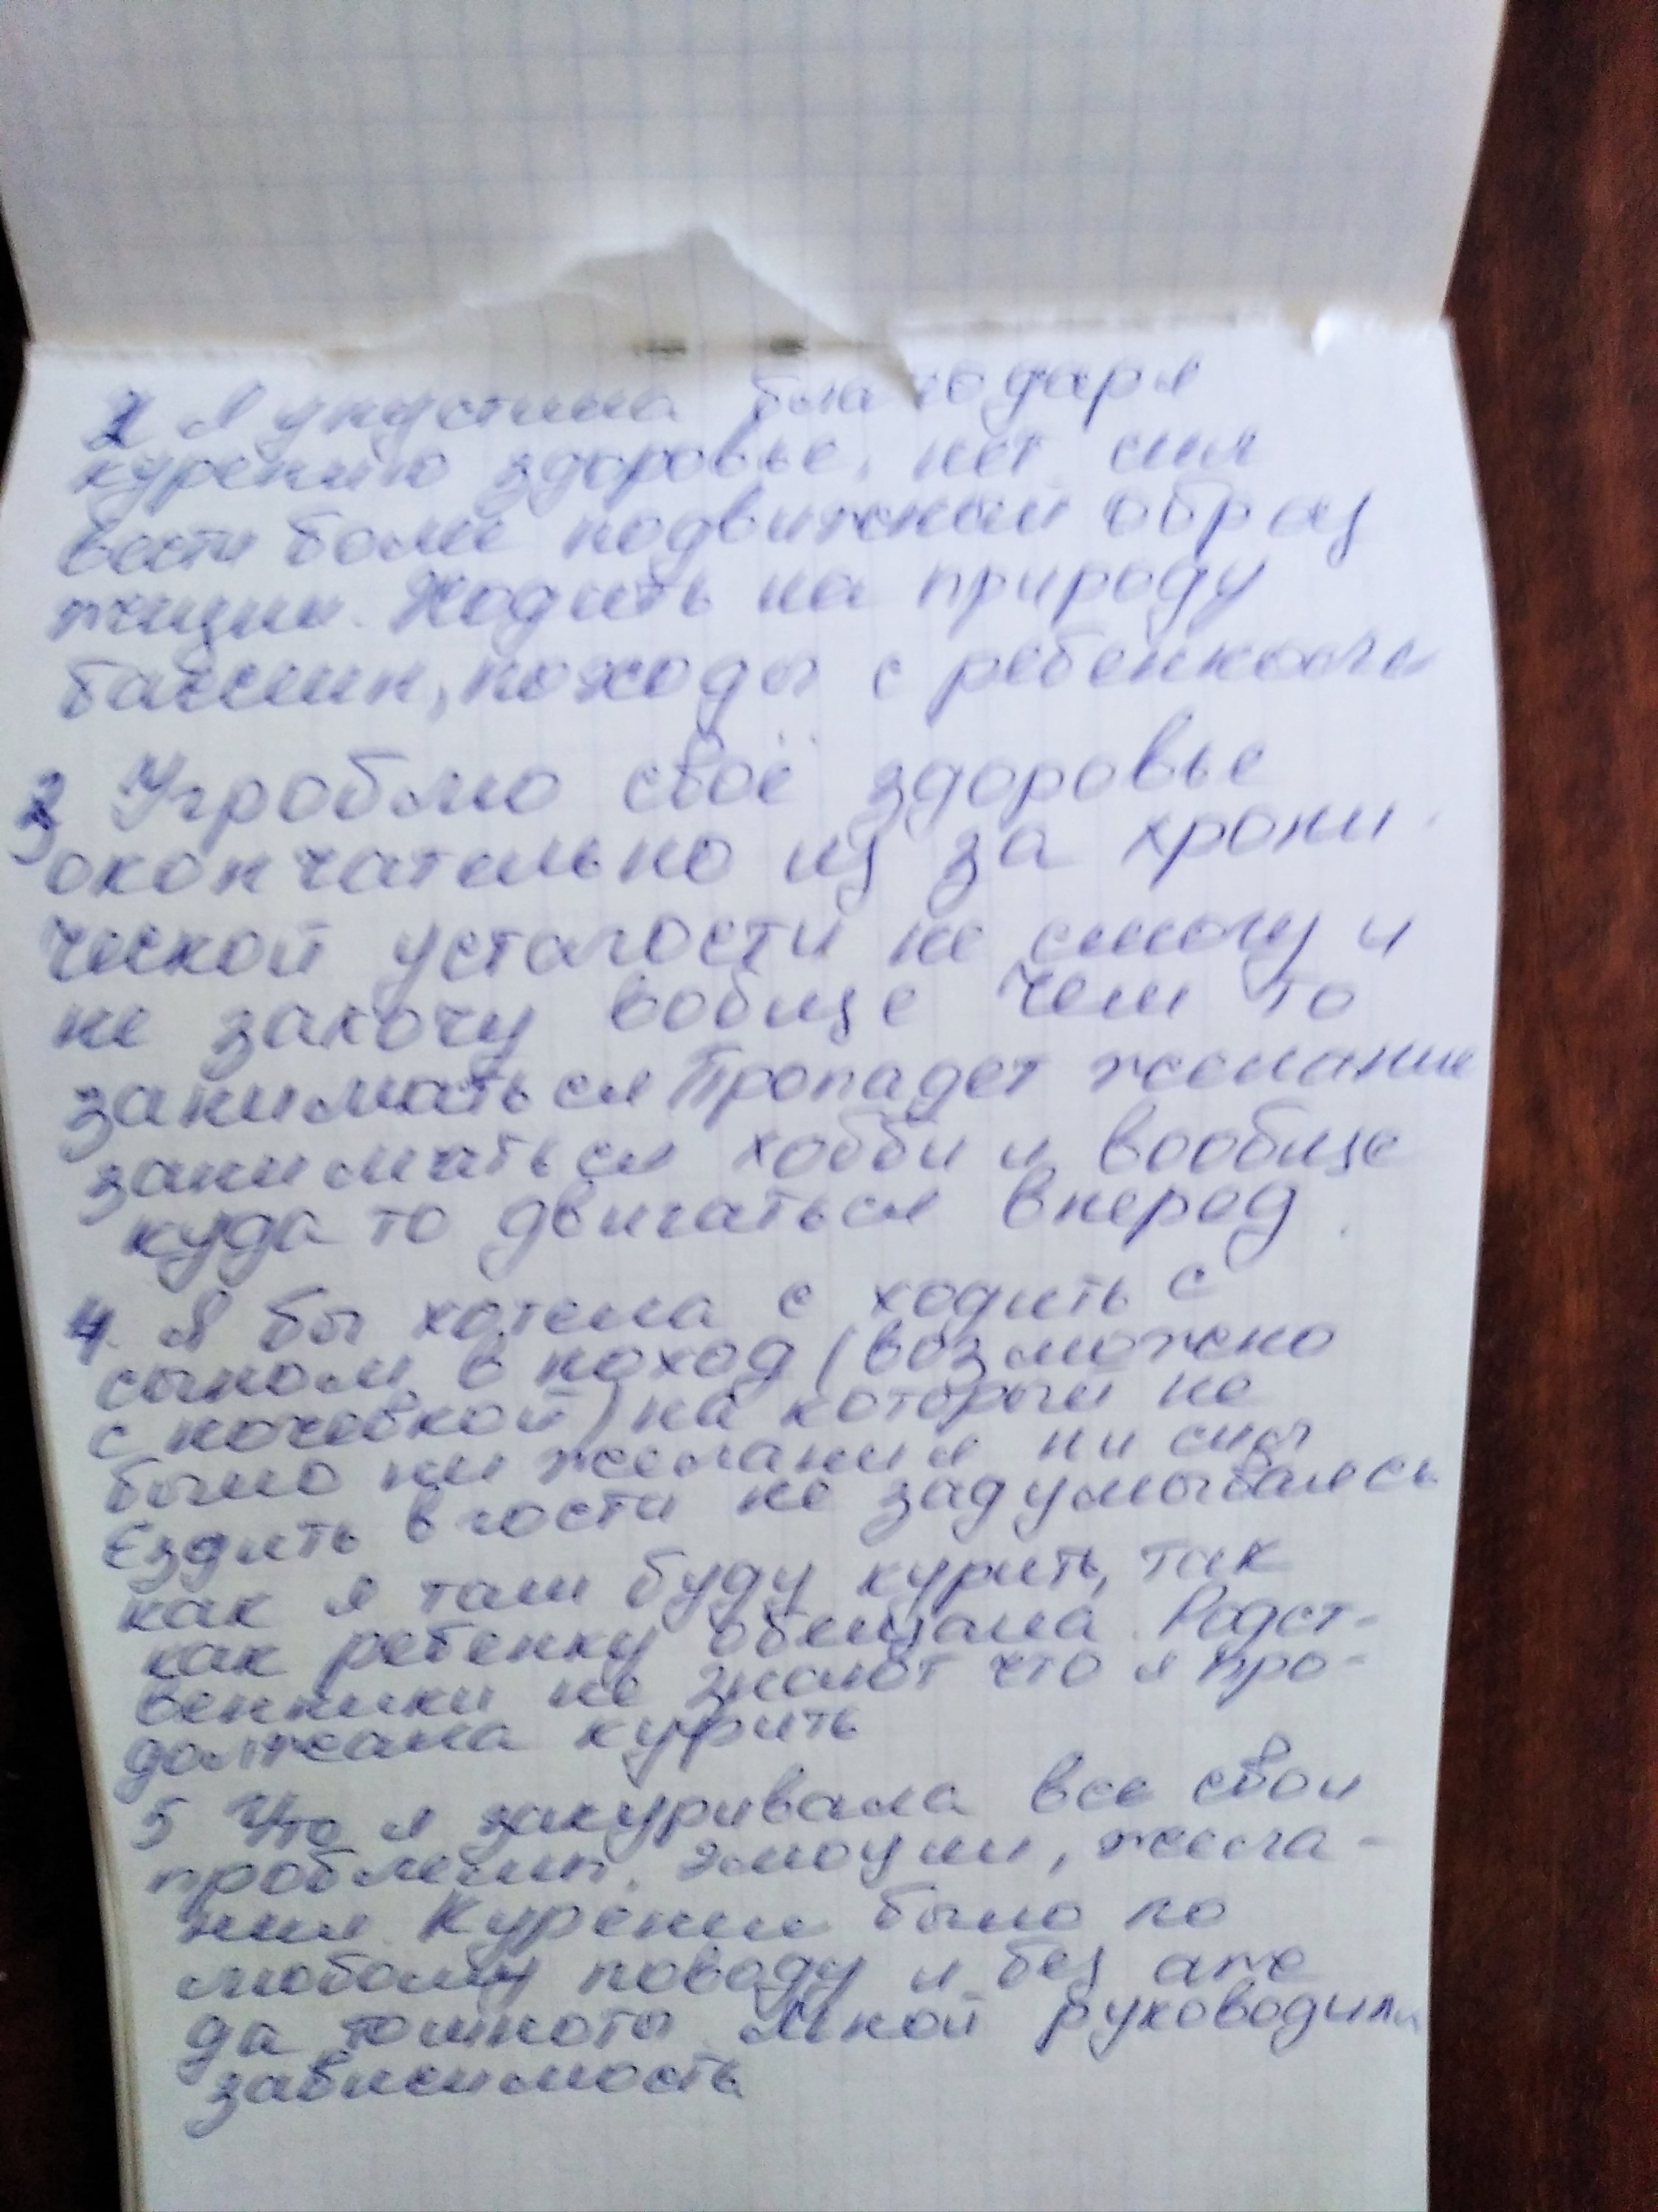 2 Я упустила благодаря
курению здоровье, нет сил
вести более подвижный образ
жизни. Ходить на природу
бассейн, походы с ребенком
3 Угроблю своё здоровье
окончательно из за хрони
ческой усталости не смогу и
не захочу вобще чем то
заниматься Пропадет желание
заниматься хобби и вообще
куда то двигаться вперед.
4. Я бы хотела с ходить с
сыном в поход (возможно
с ночевкой) на который не
было ни желания ни сил
Ездить в гости не задумываясь
как я там буду курить, так
как ребенку обещала. Родст-
венники не знают что я про-
должала курить
5 Что я закуривала все свои
проблемы, эмоции, жела-
ния. Курение было по
любому поводу и без
да тошноты. Мной руководила
зависимость